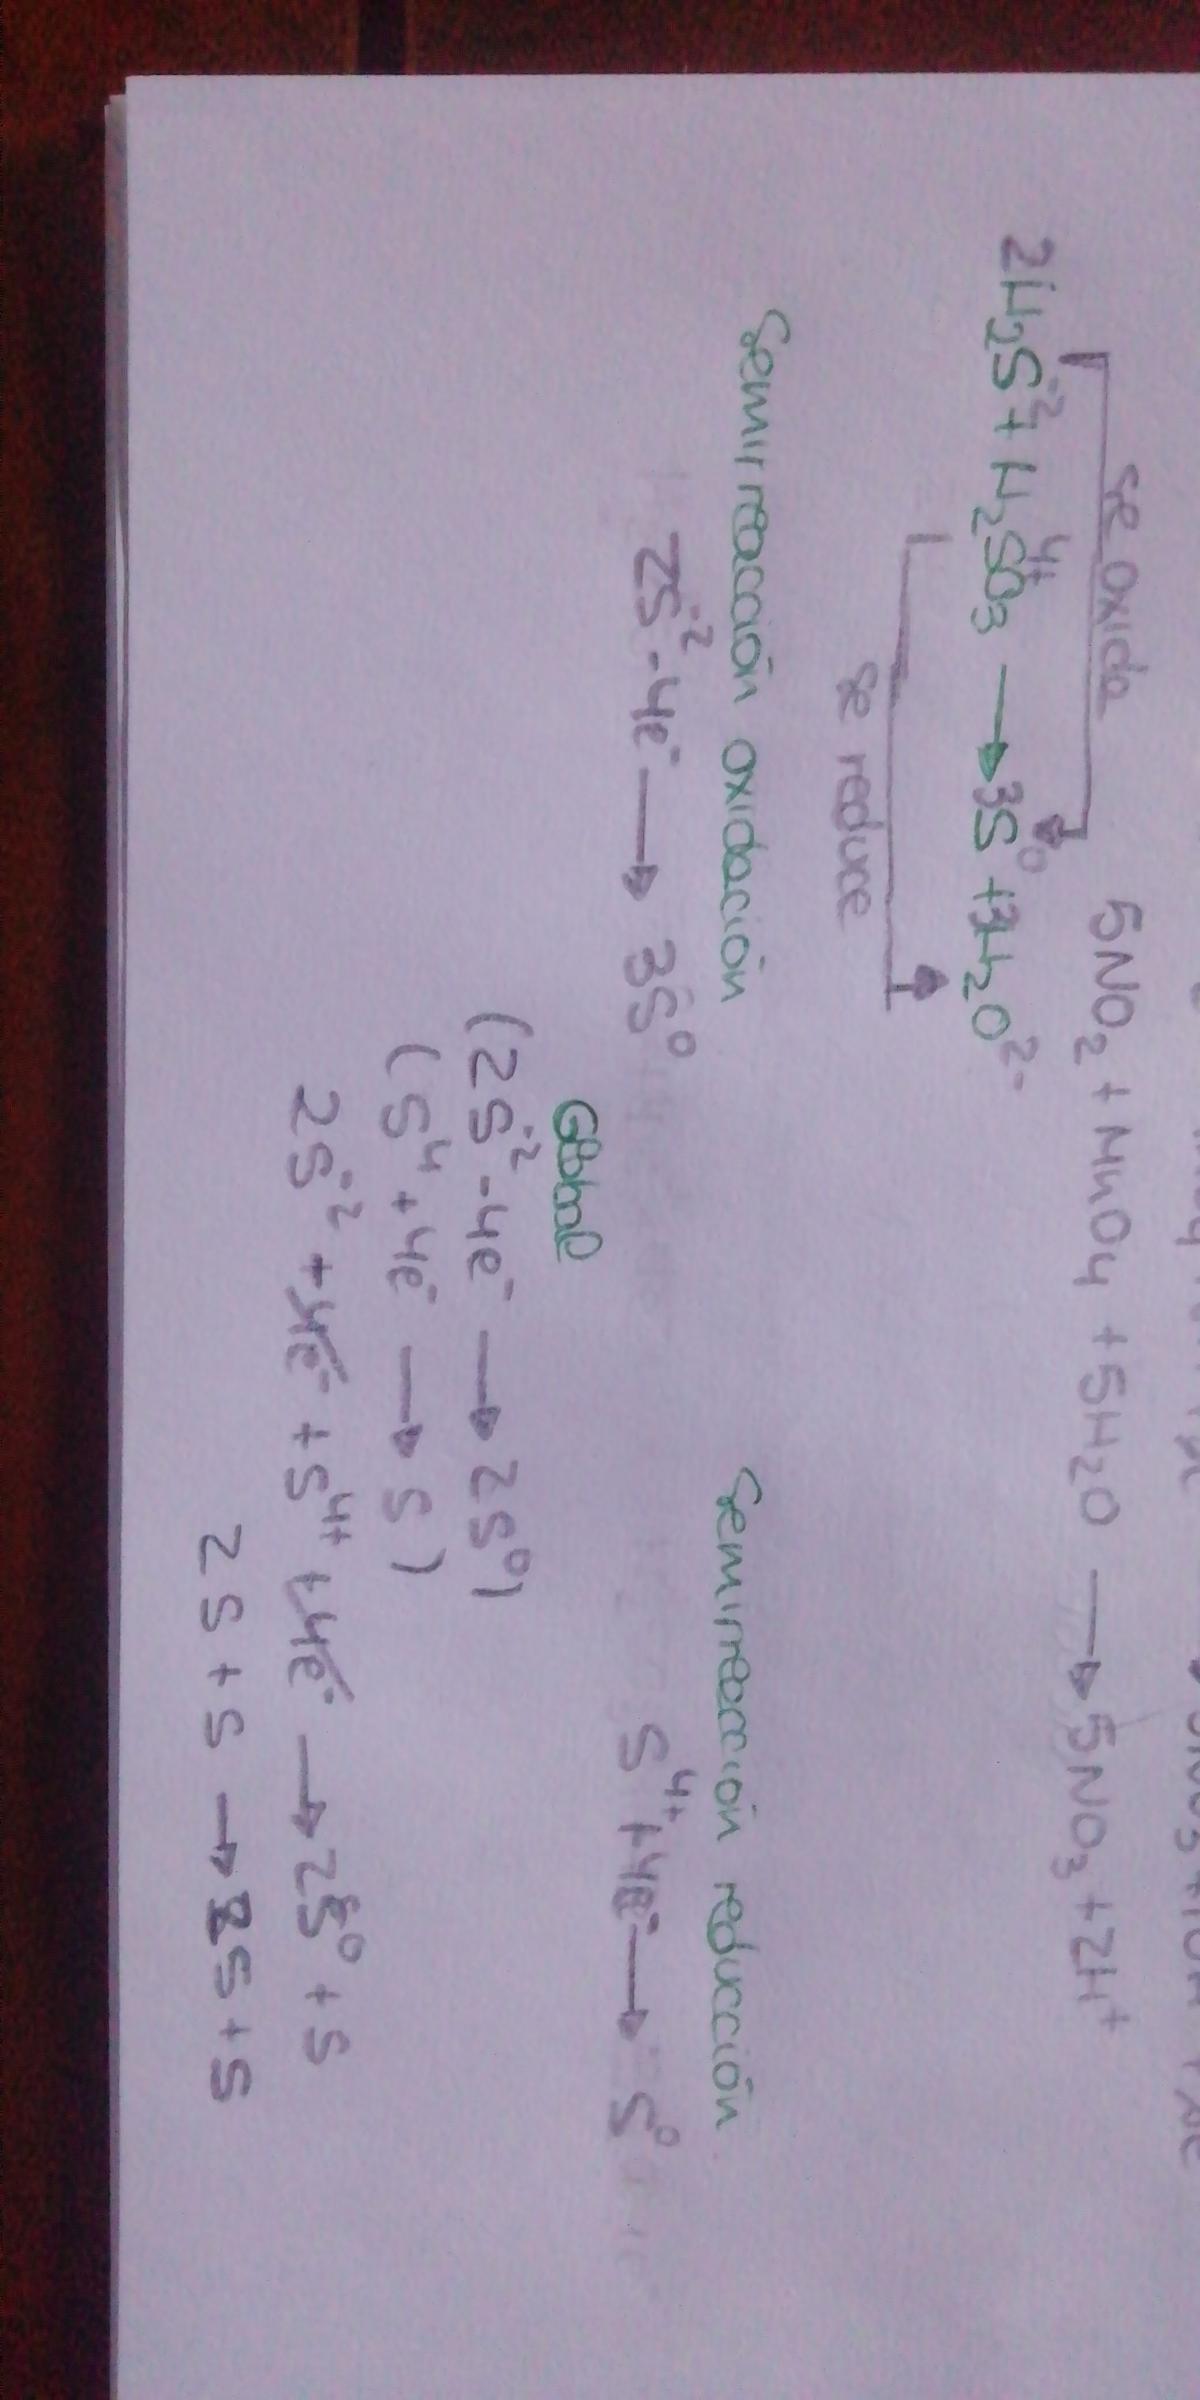 5NO2 + MnO4 + 5H2O → 5NO3 + 2H+
se oxida
2H2S-2 + H2SO3 4+ → 3S0 + 3H2O2-
se reduce
Semirreacción oxidación
Semirreacción reducción
2S-2 - 4e- → 3S0
S4+ + 4e- → S0
Global
(2S-2 - 4e- → 2S0)
(S4 + 4e- → S)
2S-2 + 4e- + S4+ + 4e- → 2S0 + S
2S + S → 2S + S